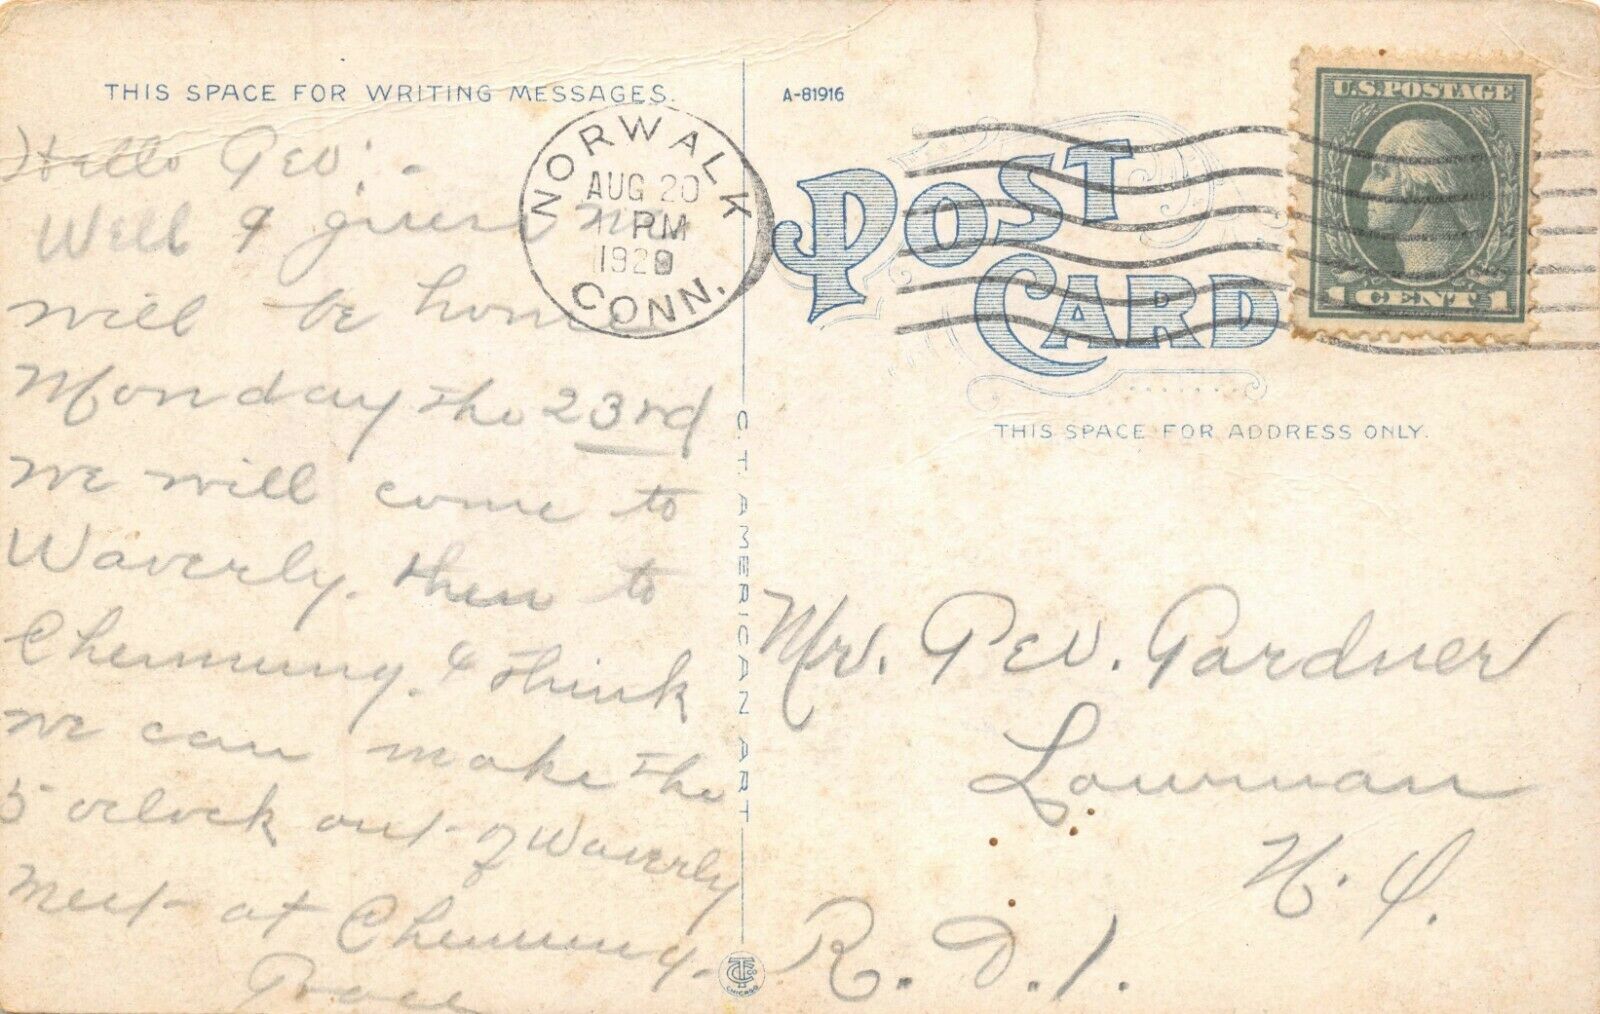 THIS SPACE FOR WRITING MESSAGES.
Hello Geo: -
Well I guess we
will be home
Monday the 23rd
we will come to
Waverly. then to
Chemung. I think
we can make the
5 oclock out of Waverly
meet at Chemung.
Grace
NORWALK
AUG 20
PM
1920
CONN.
A-81916
POST CARD
U.S. POSTAGE
1 CENT 1
THIS SPACE FOR ADDRESS ONLY.
C. T. AMERICAN ART
Mr. Geo. Gardner
Lowman
N. Y.
R. D. 1.
CHICAGO